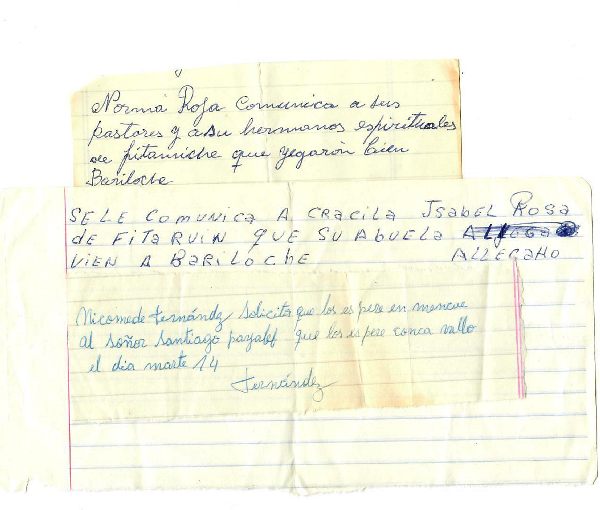 Norma Rosa Comunica a sus
pastores y a su hermanos espirituales
de pitamiche que yegarón bien
Bariloche
SE LE COMUNICA A CRACILA ISABEL ROSA
de FITARUIN QUE SU ABUELA
VIEN A BARILOCHE ALLEGAHO
Nicomede Fernándz Solicita que los espere en mencue
al soñor Santiago payalef que los espere con ca vallo
el dia marte 14
Fernández